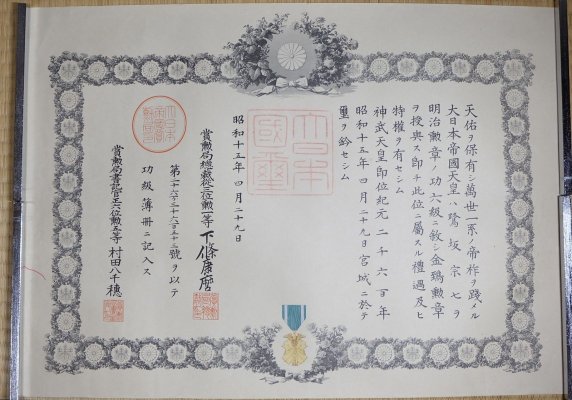 天佑ヲ保有シ萬世一系ノ帝祚ヲ踐メル
大日本帝國天皇ハ鷺坂宗七ヲ
明治勲章ノ功六級ニ敘シ金鵄勲章
ヲ授與ス即チ此位ニ屬スル禮遇及ヒ
特權ヲ有セシム
神武天皇即位紀元二千六百年
昭和十五年四月二十九日宮城ニ於テ
璽ヲ鈐セシム
大日本國璽
昭和十五年四月二十九日
賞勲局總裁從三位勲一等下條康麿
第二十六万三千六百五十二號ヲ以テ
功級簿冊ニ記入ス
賞勲局書記官正六位勲五等村田八千穂